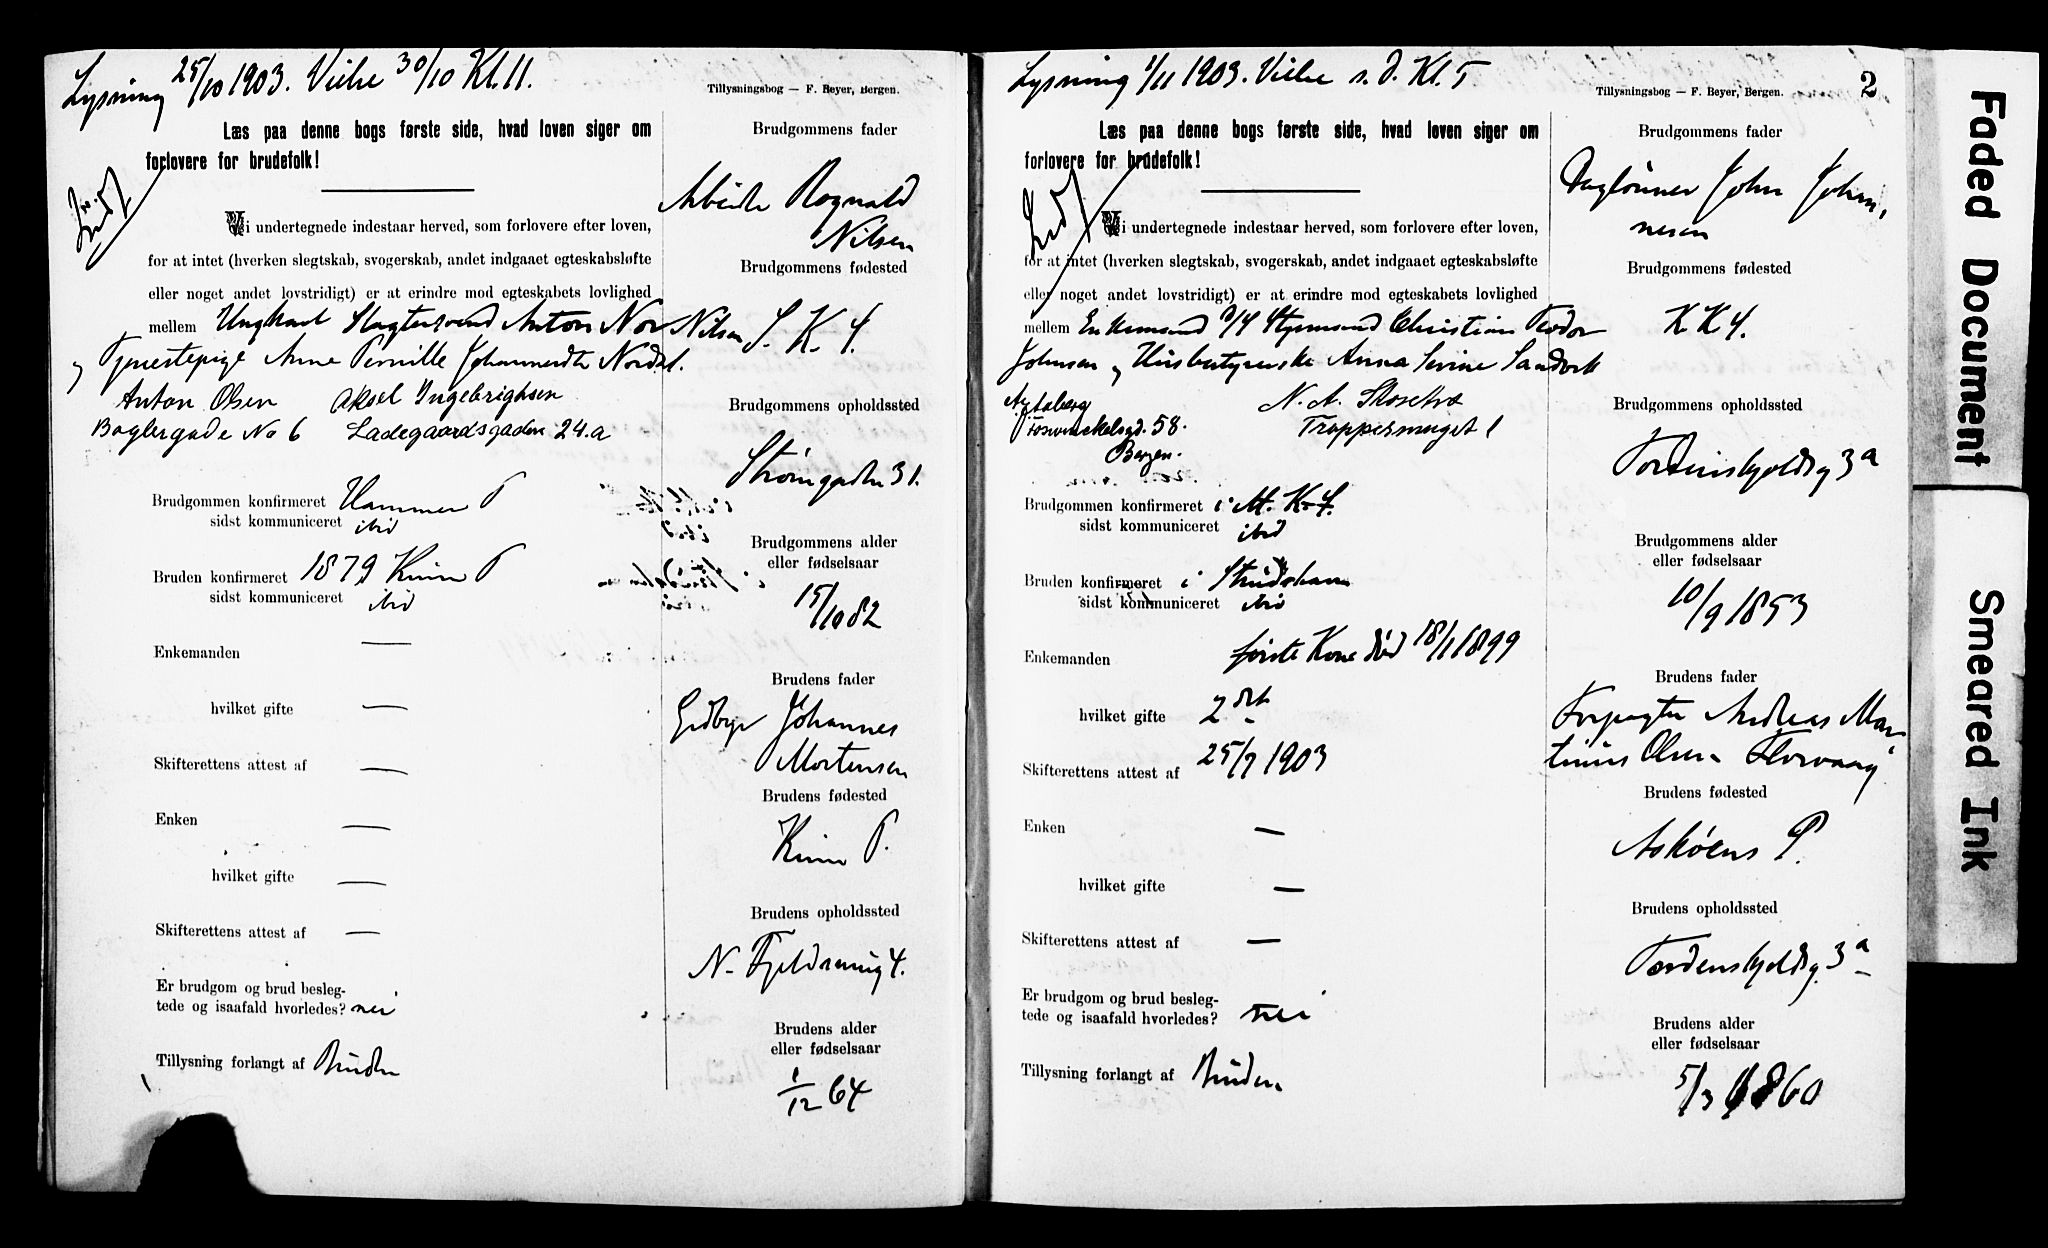 Lysning 25/10 1903. Vielse 30/10 Kl. 11.
Tillysningsbog — F. Beyer, Bergen.
Læs paa denne bogs første side, hvad loven siger om
forlovere for brudefolk!
Vi undertegnede indestaar herved, som forlovere efter loven,
for at intet (hverken slegtskab, svogerskab, andet indgaaet egteskabsløfte
eller noget andet lovstridigt) er at erindre mod egteskabets lovlighed
mellem Ungkarl Slagtersvend Anton Nor Nilsen
og Tjenestepige Anne Pernille Johannesdtr Nordal.
Anton Olsen Aksel Ingebrightsen
Baglergade No 6 Ladegaardsgaden 24.a
Brudgommen konfirmeret Hammer P
sidst kommuniceret ibid
Bruden konfirmeret 1879 Kinn P
sidst kommuniceret ibid
Enkemanden —
hvilket gifte —
Skifterettens attest af —
Enken —
hvilket gifte —
Skifterettens attest af —
Er brudgom og brud besleg-
tede og isaafald hvorledes? nei
Tillysning forlangt af Bruden
Brudgommens fader
Arbeider Rognald
Nilsen
Brudgommens fødested
S. K. f.
Brudgommens opholdssted
Strømgaden 31.
Brudgommens alder
eller fødselsaar
15/10 82
Brudens fader
Grdbrgr Johannes
Mortensen
Brudens fødested
Kinn P.
Brudens opholdssted
N. Fjeldsmug 4.
Brudens alder
eller fødselsaar
1/12 64
Lysning 1/11 1903. Vielse s. d. Kl. 5
Tillysningsbog — F. Beyer, Bergen.
2
Læs paa denne bogs første side, hvad loven siger om
forlovere for brudefolk!
Vi undertegnede indestaar herved, som forlovere efter loven,
for at intet (hverken slegtskab, svogerskab, andet indgaaet egteskabsløfte
eller noget andet lovstridigt) er at erindre mod egteskabets lovlighed
mellem Enkemand Styrmand Christian Fredor
Johnsen og Husbestyrerske Anna Sevine Sandvik
N. A. Skosetræ
58. Trappesmuget 1
Bergen.
Brudgommen konfirmeret i M. K. f.
sidst kommuniceret ibid
Bruden konfirmeret i Strudshavn
sidst kommuniceret ibid
Enkemanden første Kone død 18/1 1899
hvilket gifte 2det
Skifterettens attest af 25/7 1903
Enken —
hvilket gifte —
Skifterettens attest af —
Er brudgom og brud besleg-
tede og isaafald hvorledes? nei
Tillysning forlangt af Bruden
Brudgommens fader
Daglønner John Johan,
nesen
Brudgommens fødested
K K f.
Brudgommens opholdssted
Tordenskjoldsg 3a
Brudgommens alder
eller fødselsaar
10/9 1853
Brudens fader
Forpagter Andreas Mar-
tinius Olsen Florvaag
Brudens fødested
Askøens P.
Brudens opholdssted
Tordenskjoldsg. 3a
Brudens alder
eller fødselsaar
5/3 1860
Faded Document
Smeared Ink